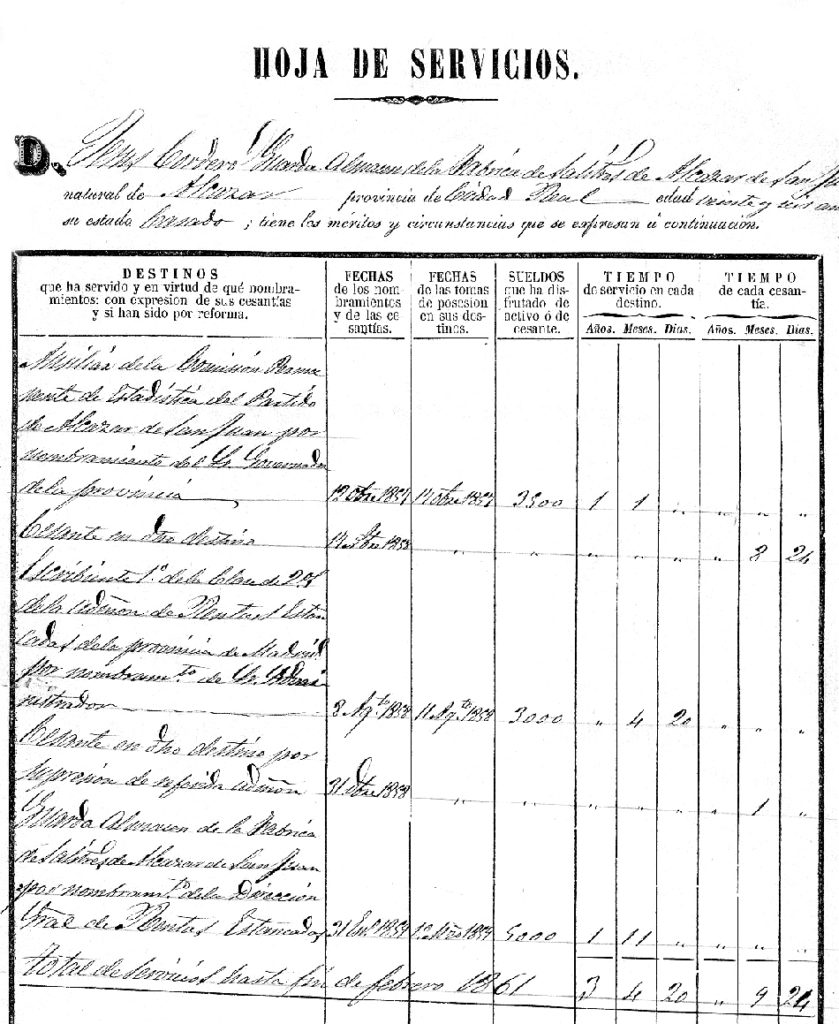 HOJA DE SERVICIOS.
D. Jesus Cordero Guarda Almacen de la Fabrica de Salitres de Alcazar de San Ju
natural de Alcazar provincia de Ciudad Real edad veinte y seis an
su estado Casado ; tiene los méritos y circunstancias que se expresan á continuacion.
DESTINOS
que ha servido y en virtud de qué nombra-
mientos: con expresion de sus cesantías
y si han sido por reforma.
FECHAS
de los nom-
bramientos
y de las ce
santías.
FECHAS
de las tomas
de posesion
en sus des-
tinos.
SUELDOS
que ha dis-
frutado de
activo ó de
cesante.
TIEMPO
de servicio en cada
destino.
Años. Meses. Dias.
TIEMPO
de cada cesan-
tía.
Años. Meses. Dias.
Ausiliar de la Comisión Perma
nente de Estadística del Partido
de Alcazar de San Juan por
nombramiento del Sr. Governador
de la provincia 12 Obre 1857 14 Obre 1857 3500 1 1 " " " "
Cesante en dho destino " " " " " " 8 24
Escribiente 1º de la clase de 2os
de la admon de Rentas Estan
cadas de la provincia de Madrid
por nombramto de Sr. Admi
nistrador 8 Agto 1858 11 Agto 1858 3000 " 4 20 " " "
Cesante en dho destino por
supresion de referida admon 31 Dbre 1858 " " " " " " 1 "
Guarda Almacen de la Fabrica
de Salitres de Alcazar de San Juan
por nombramto de la Dirección
Gral de Rentas Estancadas 31 Eno 1859 5000 1 11 " " " "
total de servicios hasta fin de febrero 1861 3 4 20 " 9 24